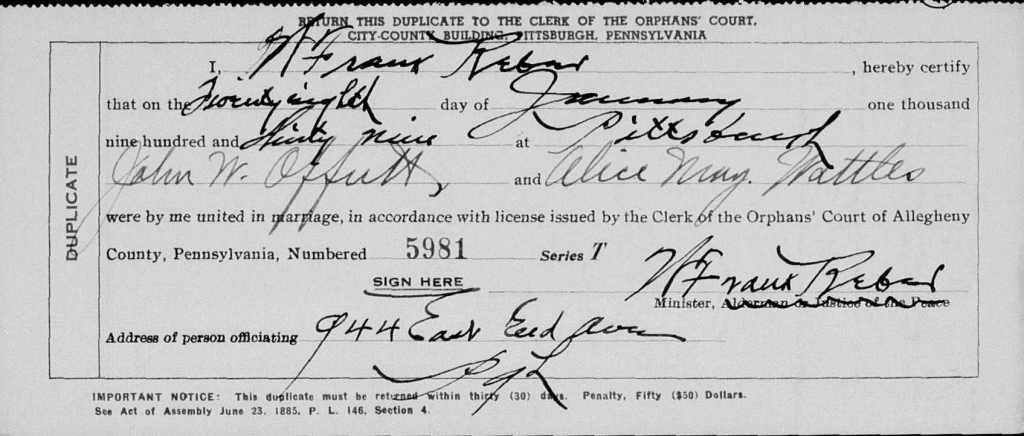 RETURN THIS DUPLICATE TO THE CLERK OF THE ORPHANS' COURT,
CITY-COUNTY BUILDING, PITTSBURGH, PENNSYLVANIA
I, W Frank Reber, hereby certify
that on the Twenty eighth day of January one thousand
nine hundred and thirty nine at Pittsburgh
John W. Offutt, and Alice May. Wattles
were by me united in marriage, in accordance with license issued by the Clerk of the Orphans' Court of Allegheny
County, Pennsylvania, Numbered 5981 Series T
SIGN HERE W Frank Reber
Minister, Alderman or Justice of the Peace
Address of person officiating 944 East End Ave
Pgh
DUPLICATE
IMPORTANT NOTICE: This duplicate must be returned within thirty (30) days. Penalty, Fifty ($50) Dollars.
See Act of Assembly June 23, 1885, P. L. 146, Section 4.